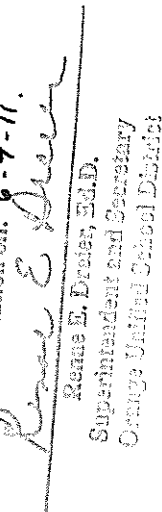 on: 6-9-11.
Renae E Dreier
Renae E. Dreier, Ed.D.
Superintendent and Secretary
Orange Unified School District